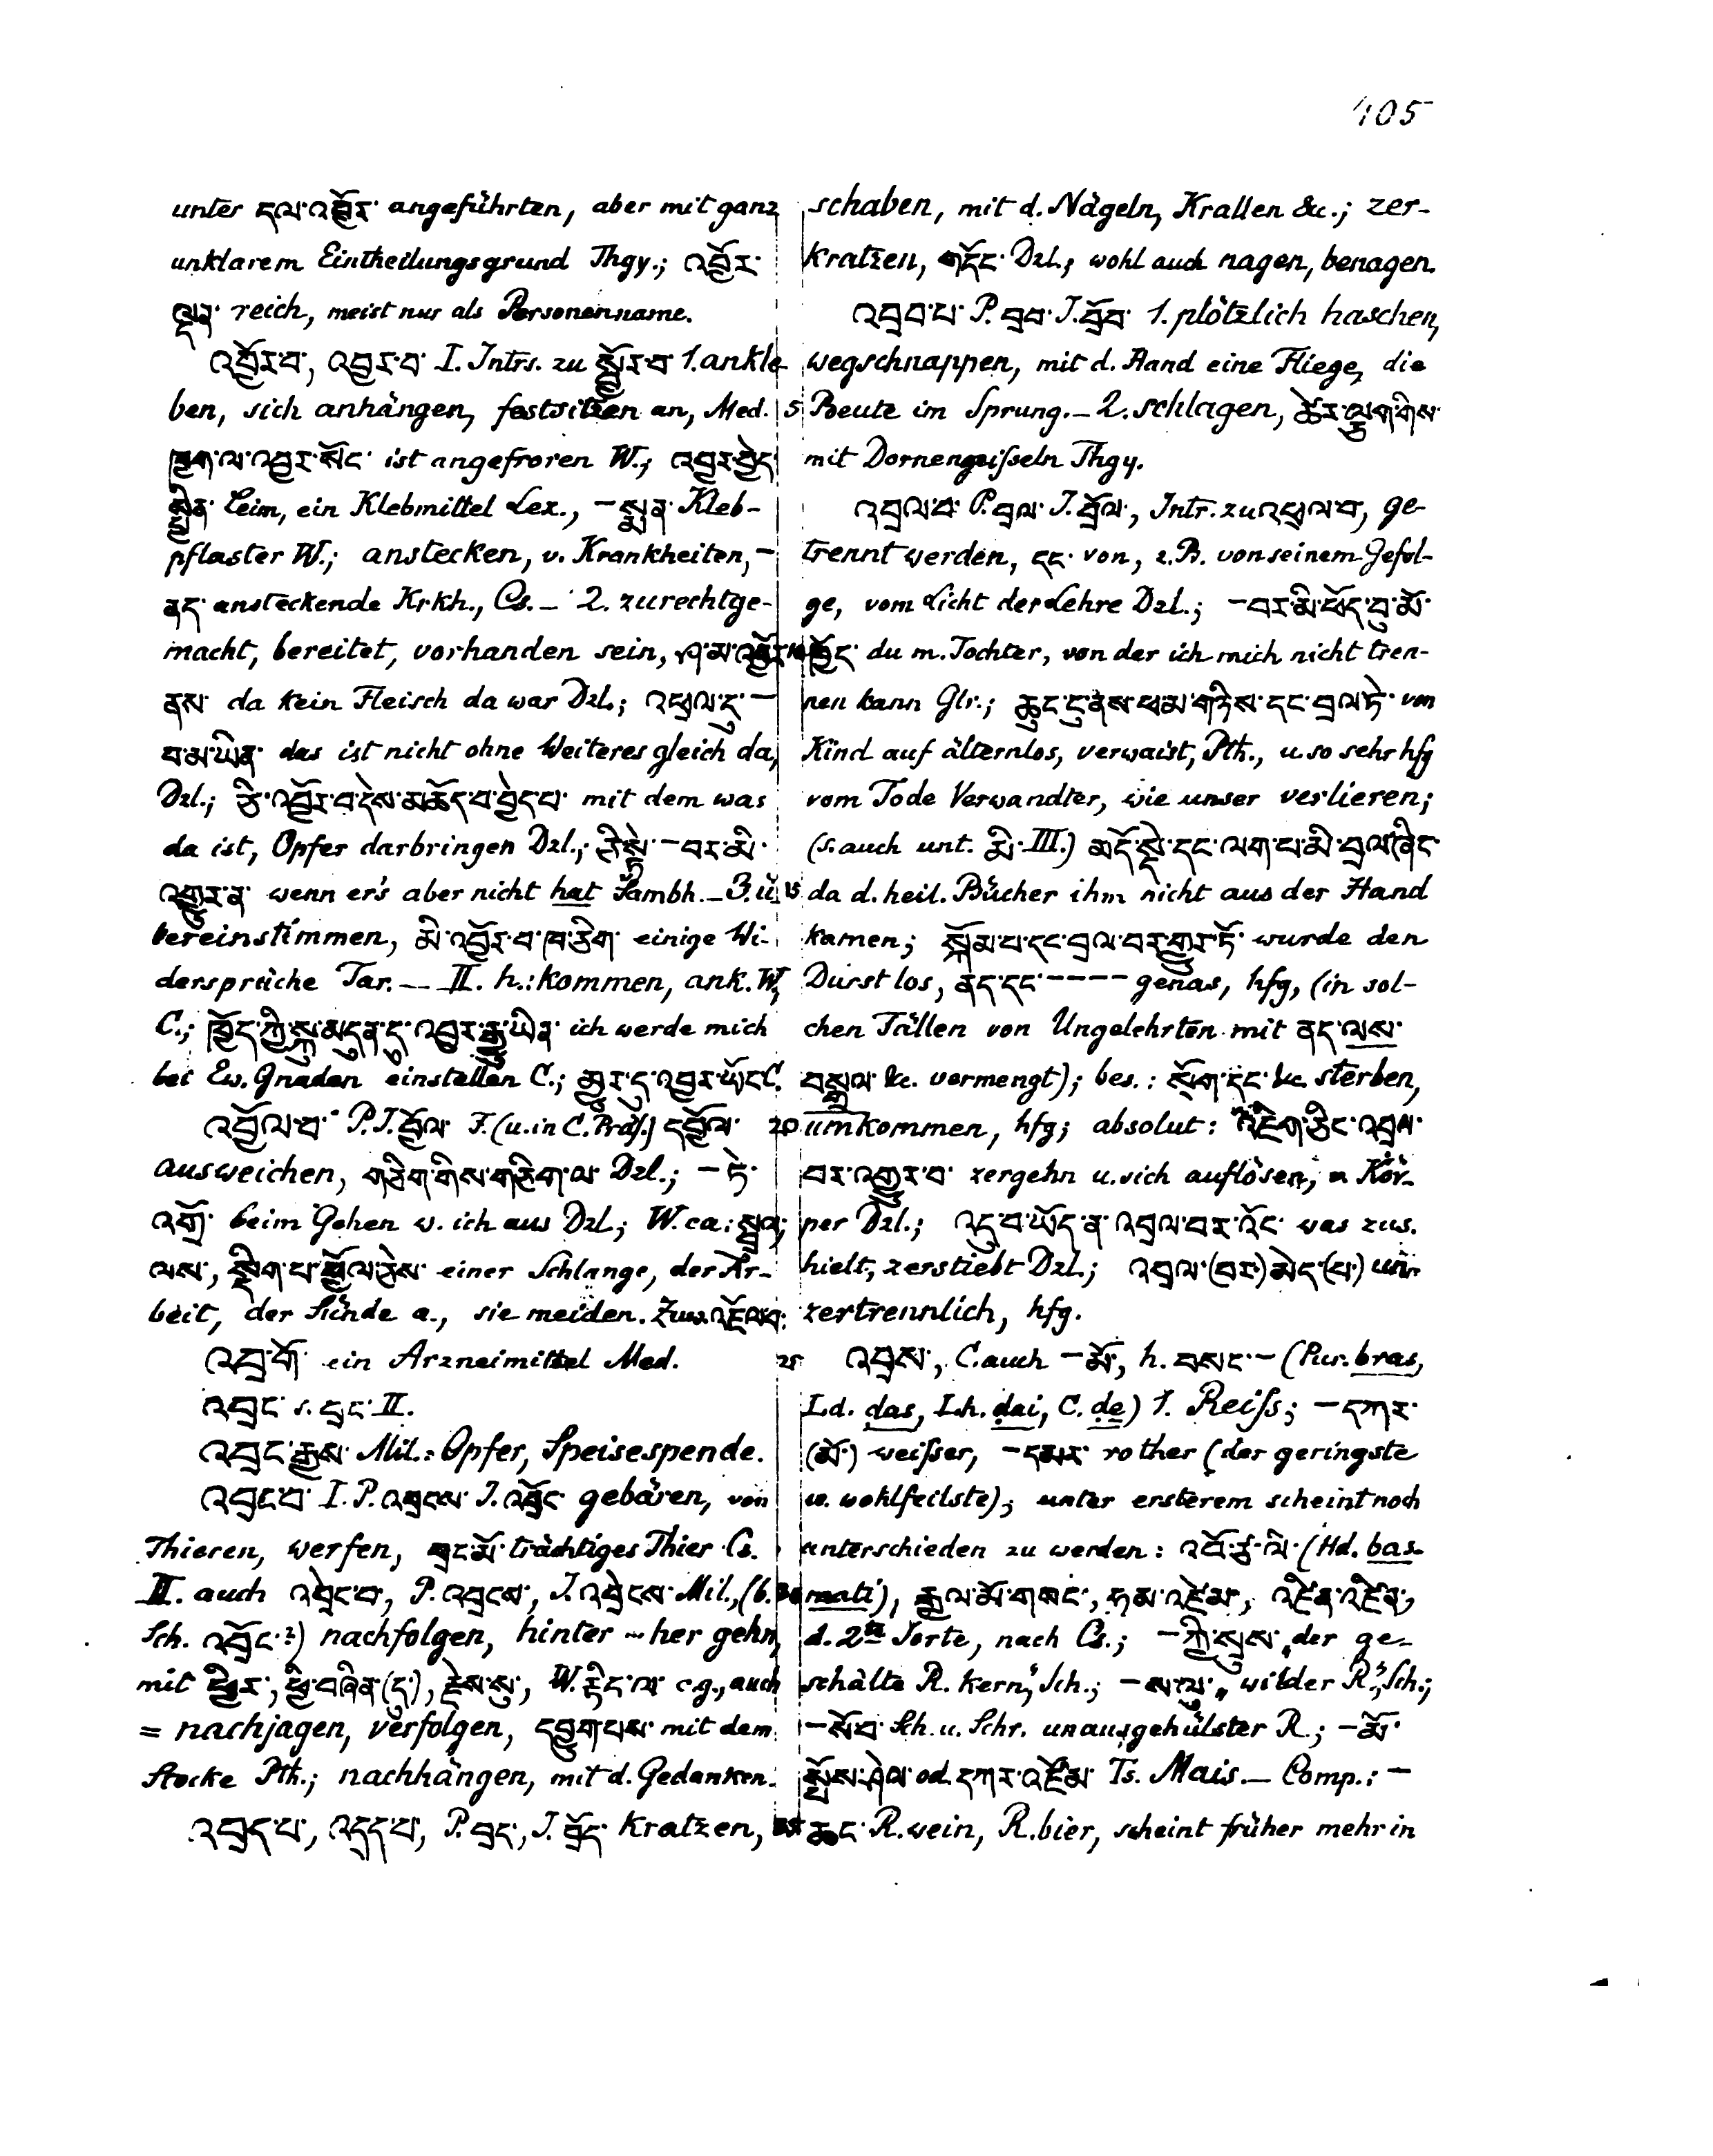 405
unter དལ་འབྱོར་ angeführten, aber mit ganz
unklarem Eintheilungsgrund Thgy.; འབྱོར་
ལྡན་ reich, meist nur als Personenname.
འབྱོར་བ, འབྱར་བ་ I. Intrs. zu སྦྱོར་བ 1. ankle-
ben, sich anhängen, festsitzen an, Med.
ཁྱག་ལ་འབྱར་སོང་ ist angefroren W.; འབྱར་བྱེད་
སྤྱིན་ Leim, ein Klebmittel Lex., – སྨན་ Kleb-
pflaster W.; anstecken, v. Krankheiten, –
ནད་ ansteckende Krkh., Cs. – 2. zurechtge-
macht, bereitet, vorhanden sein, ཤ་མ་འབྱོར་
ནས་ da kein Fleisch da war Dzl.; འཕྲལ་དུ་ –
བ་མ་ཡིན་ das ist nicht ohne Weiteres gleich da,
Dzl.; ཅི་འབྱོར་བ་དེས་མཆོད་པ་བྱེད་པ་ mit dem was
da ist, Opfer darbringen Dzl.; ཅི་སྟེ་ – བར་མི་
འགྱུར་ན་ wenn er's aber nicht hat Sambh. – 3. ü-
bereinstimmen, མི་འབྱོར་བ་ཁ་ཅིག་ einige Wi-
dersprüche Tar. — II. h.: kommen, ank. W.,
C.; ཁྱོད་ཀྱི་སྐུ་མདུན་དུ་འབྱར་རྒྱུ་ཡིན་ ich werde mich
bei Ew. Gnaden einstellen C.; མྱུར་དུ་འབྱར་ཡོང་ C.
འབྱོལ་བ་ P. I. བྱོལ་ F. (u. in C. Präs.) དབྱོལ་
ausweichen, གཅིག་གིས་གཅིག་ལ་ Dzl.; – ཏེ་
འགྲོ་ beim Gehen w. ich aus Dzl.; W. ca:
ལས་, སྡིག་པ་ བྱོལ་ཅེས་ einer Schlange, der Ar-
beit, der Sünde a., sie meiden. Zuw. འཛོལ་བ་
འབྲ་གོ་ ein Arzneimittel Med.
འབྲང་ s. བྲང་ II.
འབྲང་རྒྱས་ Mil.: Opfer, Speisespende.
འབྲང་བ་ I. P. འབྲངས་ I. འབྲོང་ gebären, von
Thieren, werfen, བྲང་མོ་ trächtiges Thier Cs.
II. auch འབྲེང་བ་, P. འབྲངས་, I. འབྲེངས་ Mil., (b.
Sch. འབྲོང་?) nachfolgen, hinter – her gehn,
mit ཕྱིར་, ཕྱི་བཞིན་(དུ་), རྗེས་སུ་, W. རྟིང་ལ་ c.g., auch
= nachjagen, verfolgen, དབྱུག་པས་ mit dem
Stocke Pth.; nachhängen, mit d. Gedanken.
འབྲད་པ་, འདྲད་པ་, P. བྲད་, I. བྲོད་ kratzen,
schaben, mit d. Nägeln, Krallen &c.; zer-
kratzen, གདོང་ Dzl.; wohl auch nagen, benagen.
འབྲབ་པ་ P. བྲབ་ I. བྲོབ་ 1. plötzlich haschen,
wegschnappen, mit d. Hand eine Fliege, die
5 Beute im Sprung. – 2. schlagen, ཚེར་ལྕུག་གིས་
mit Dornengeisseln Thgy.
འབྲལ་བ་ P. བྲལ་ I. བྲོལ་, Intr. zu འཕྲལ་བ་, ge-
trennt werden, དང་ von, z.B. von seinem Gefol-
ge, vom Licht der Lehre Dzl.; – བར་མི་ཕོད་བུ་མོ་
ཁྱོད་ du m. Tochter, von der ich mich nicht tren-
nen kann Glr.; ཆུང་ངུ་ནས་ཕ་མ་གཉིས་དང་བྲལ་ཏེ་ von
Kind auf älternlos, verwaist, Pth., u. so sehr hfg
vom Tode Verwandter, wie unser verlieren;
(s. auch unt. མི་ III.) མདོ་སྡེ་དང་ལག་པ་མི་འབྲལ་ཞིང་
15 da d. heil. Bücher ihm nicht aus der Hand
kamen; སྐོམ་པ་དང་བྲལ་བར་གྱུར་ཏོ་ wurde den
Durst los, ནད་དང་ – – – – genas, hfg, (in sol-
chen Fällen von Ungelehrten mit ནད་ལས་
བསྒྲལ་ &c. vermengt); bes.: སྲོག་དང་ &c. sterben,
20 umkommen, hfg; absolut: འཇིག་ཅིང་འབྲལ་
བར་འགྱུར་བ་ zergehn u. sich auflösen, v. Kör-
per Dzl.; འདུ་བ་ཡོད་ན་འབྲལ་བར་འོང་ was zus.
hielt, zerstiebt Dzl.; འབྲལ་(བར་)མེད་(པ་) un-
zertrennlich, hfg.
25 འབྲས་, C. auch – མོ་, h. བསང་ – (Pur. bras,
Ld. das, Lh. dai, C. de) 1. Reiss; – དཀར་
(མོ་) weisser, – དམར་ rother (der geringste
u. wohlfeilste); unter ersterem scheint noch
unterschieden zu werden: འབོ་རྩ་ལི་ (Hd. bas-
mati), རྒྱལ་མོ་གསང་,
d. 2te Sorte, nach Cs.; – ཀྱི་སུས་ „der ge-
schälte R. kern," Sch.; – ས་ལུ་ „wilder R.," Sch.;
– སོ་བ་ Sch. u. Schr. unausgehülster R.; – མོ་
སྤོས་ཤེལ་ od. དཀར་འཛོམ་ Ts. Mais. – Comp.: –
ཆང་ R.wein, R.bier, scheint früher mehr in